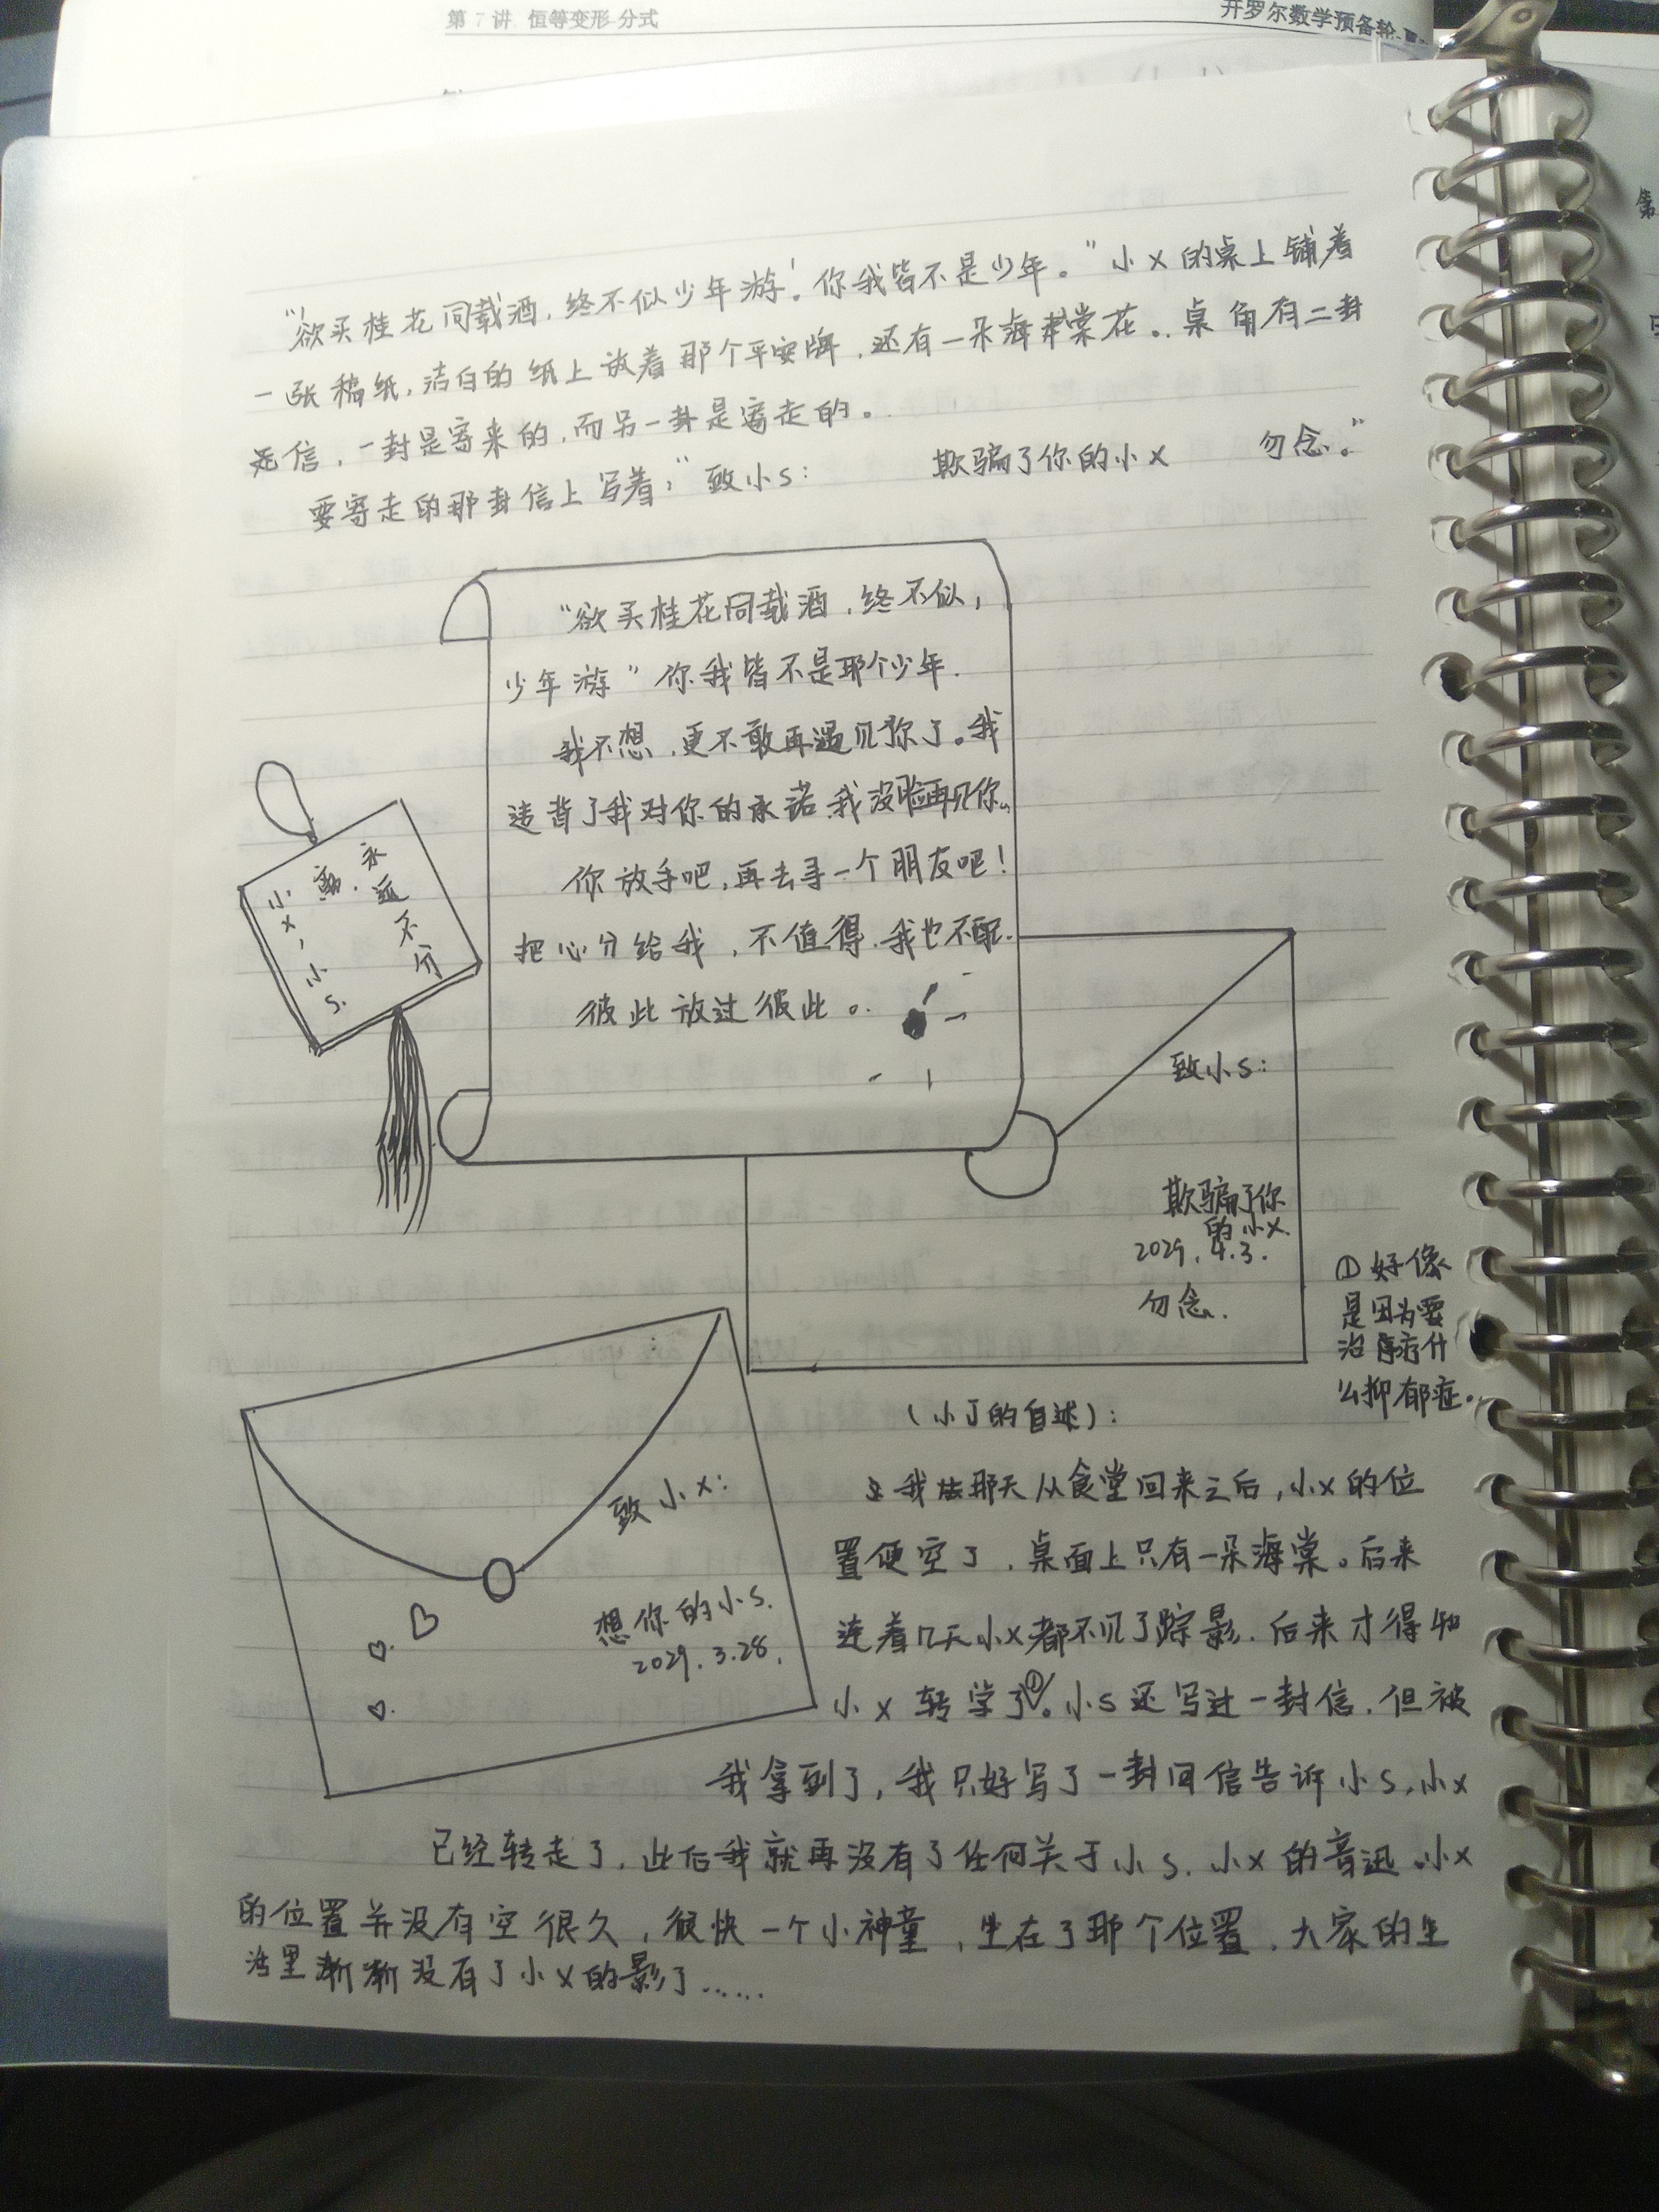 第7讲 恒等变形-分式
开罗尔数学预备轮
"欲买桂花同载酒,终不似少年游!你我皆不是少年。"小x的桌上铺着
一张稿纸,洁白的纸上放着那个平安牌,还有一朵海棠花。桌角有二封
信,一封是寄来的,而另一封是寄走的。
要寄走的那封信上写着:"致小s: 欺骗了你的小x 勿念。"
"欲买桂花同载酒,终不似,
少年游"你我皆不是那个少年.
我不想,更不敢再遇见你了。我
违背了我对你的承诺.我没脸再见你。
你放手吧,再去寻一个朋友吧!
把心分给我,不值得.我也不配.
彼此放过彼此。
永远不分
离.
小x,小s.
致小s:
欺骗了你
的小x.
2029.4.3.
勿念.
①好像
是因为要
治疗什
么抑郁症。
致小x:
想你的小s.
2029.3.28.
(小J的自述):
我那天从食堂回来之后,小x的位
置便空了,桌面上只有一朵海棠。后来
连着几天小x都不见了踪影.后来才得知
小x转学了①。小s还写过一封信,但被
我拿到了,我只好写了一封回信告诉小s,小x
已经转走了,此后我就再没有了任何关于小s、小x的音迅。小x
的位置并没有空很久,很快一个小神童,坐在了那个位置,大家的生
活里渐渐没有了小x的影了……